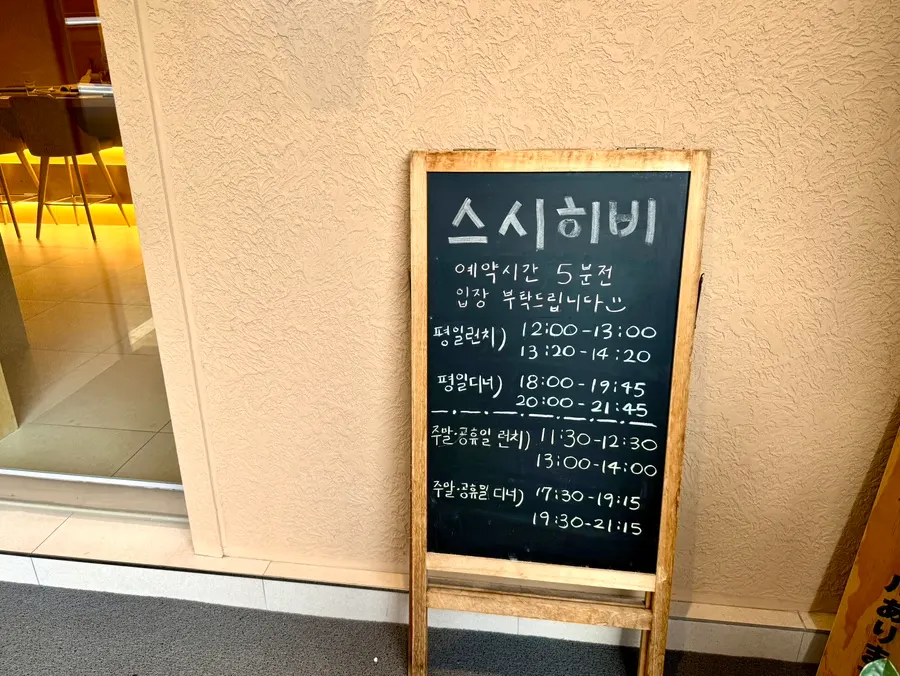 스시히비
예약시간 5분전
입장 부탁드립니다
평일런치) 12:00-13:00
13:20-14:20
평일디너) 18:00-19:45
20:00-21:45
주말·공휴일 런치) 11:30-12:30
13:00-14:00
주말·공휴일 디너) 17:30-19:15
19:30-21:15
ありま